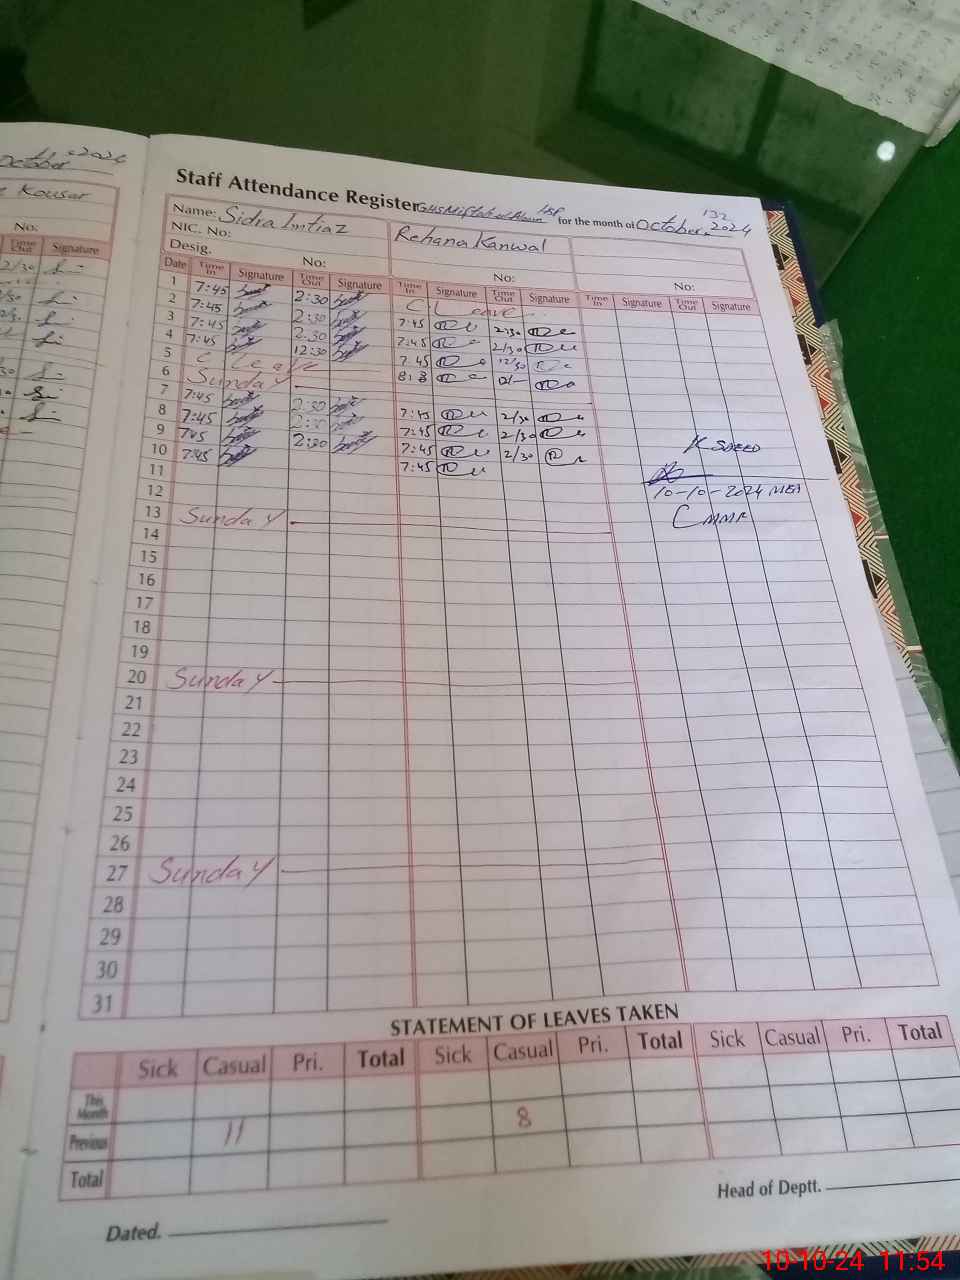 October 2024
Kousar
No:
Time Out Signature
Staff Attendance Register for the month of October, 2024
132
Name: Sidra Imtiaz Rehana Kanwal
NIC. No:
Desig. No: No: No:
Date Time In Signature Time Out Signature Time In Signature Time Out Signature Time In Signature Time Out Signature
1 7:45 2:30 C Leave
2 7:45 2:30 7:45 2:30
3 7:45 2:30 7:45 2/30
4 7:45 12:30 7:45 12/30
5 C Leave
6 Sunday
7 7:45 2:30 7:45 2/30
8 7:45 2:30 7:45 2/30
9 7:45 2:30 7:45 2/30
10 7:45 7:45
11
12
13 Sunday
14
15
16
17
18
19
20 Sunday
21
22
23
24
25
26
27 Sunday
28
29
30
31
10-10-2024 MEA
STATEMENT OF LEAVES TAKEN
Sick Casual Pri. Total Sick Casual Pri. Total Sick Casual Pri. Total
This Month
Previous 11 8
Total
Head of Deptt.
Dated.
10-10-24 11:54